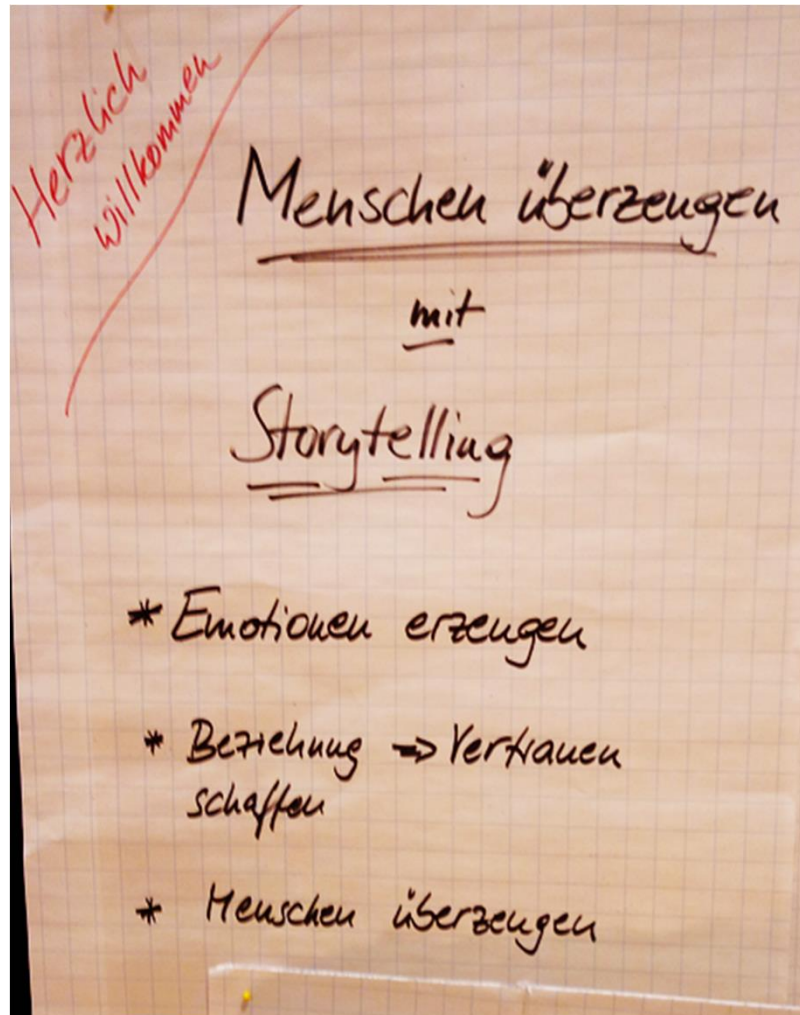 Herzlich
willkommen
Menschen überzeugen
mit
Storytelling
* Emotionen erzeugen
* Beziehung => Vertrauen
schaffen
* Menschen überzeugen